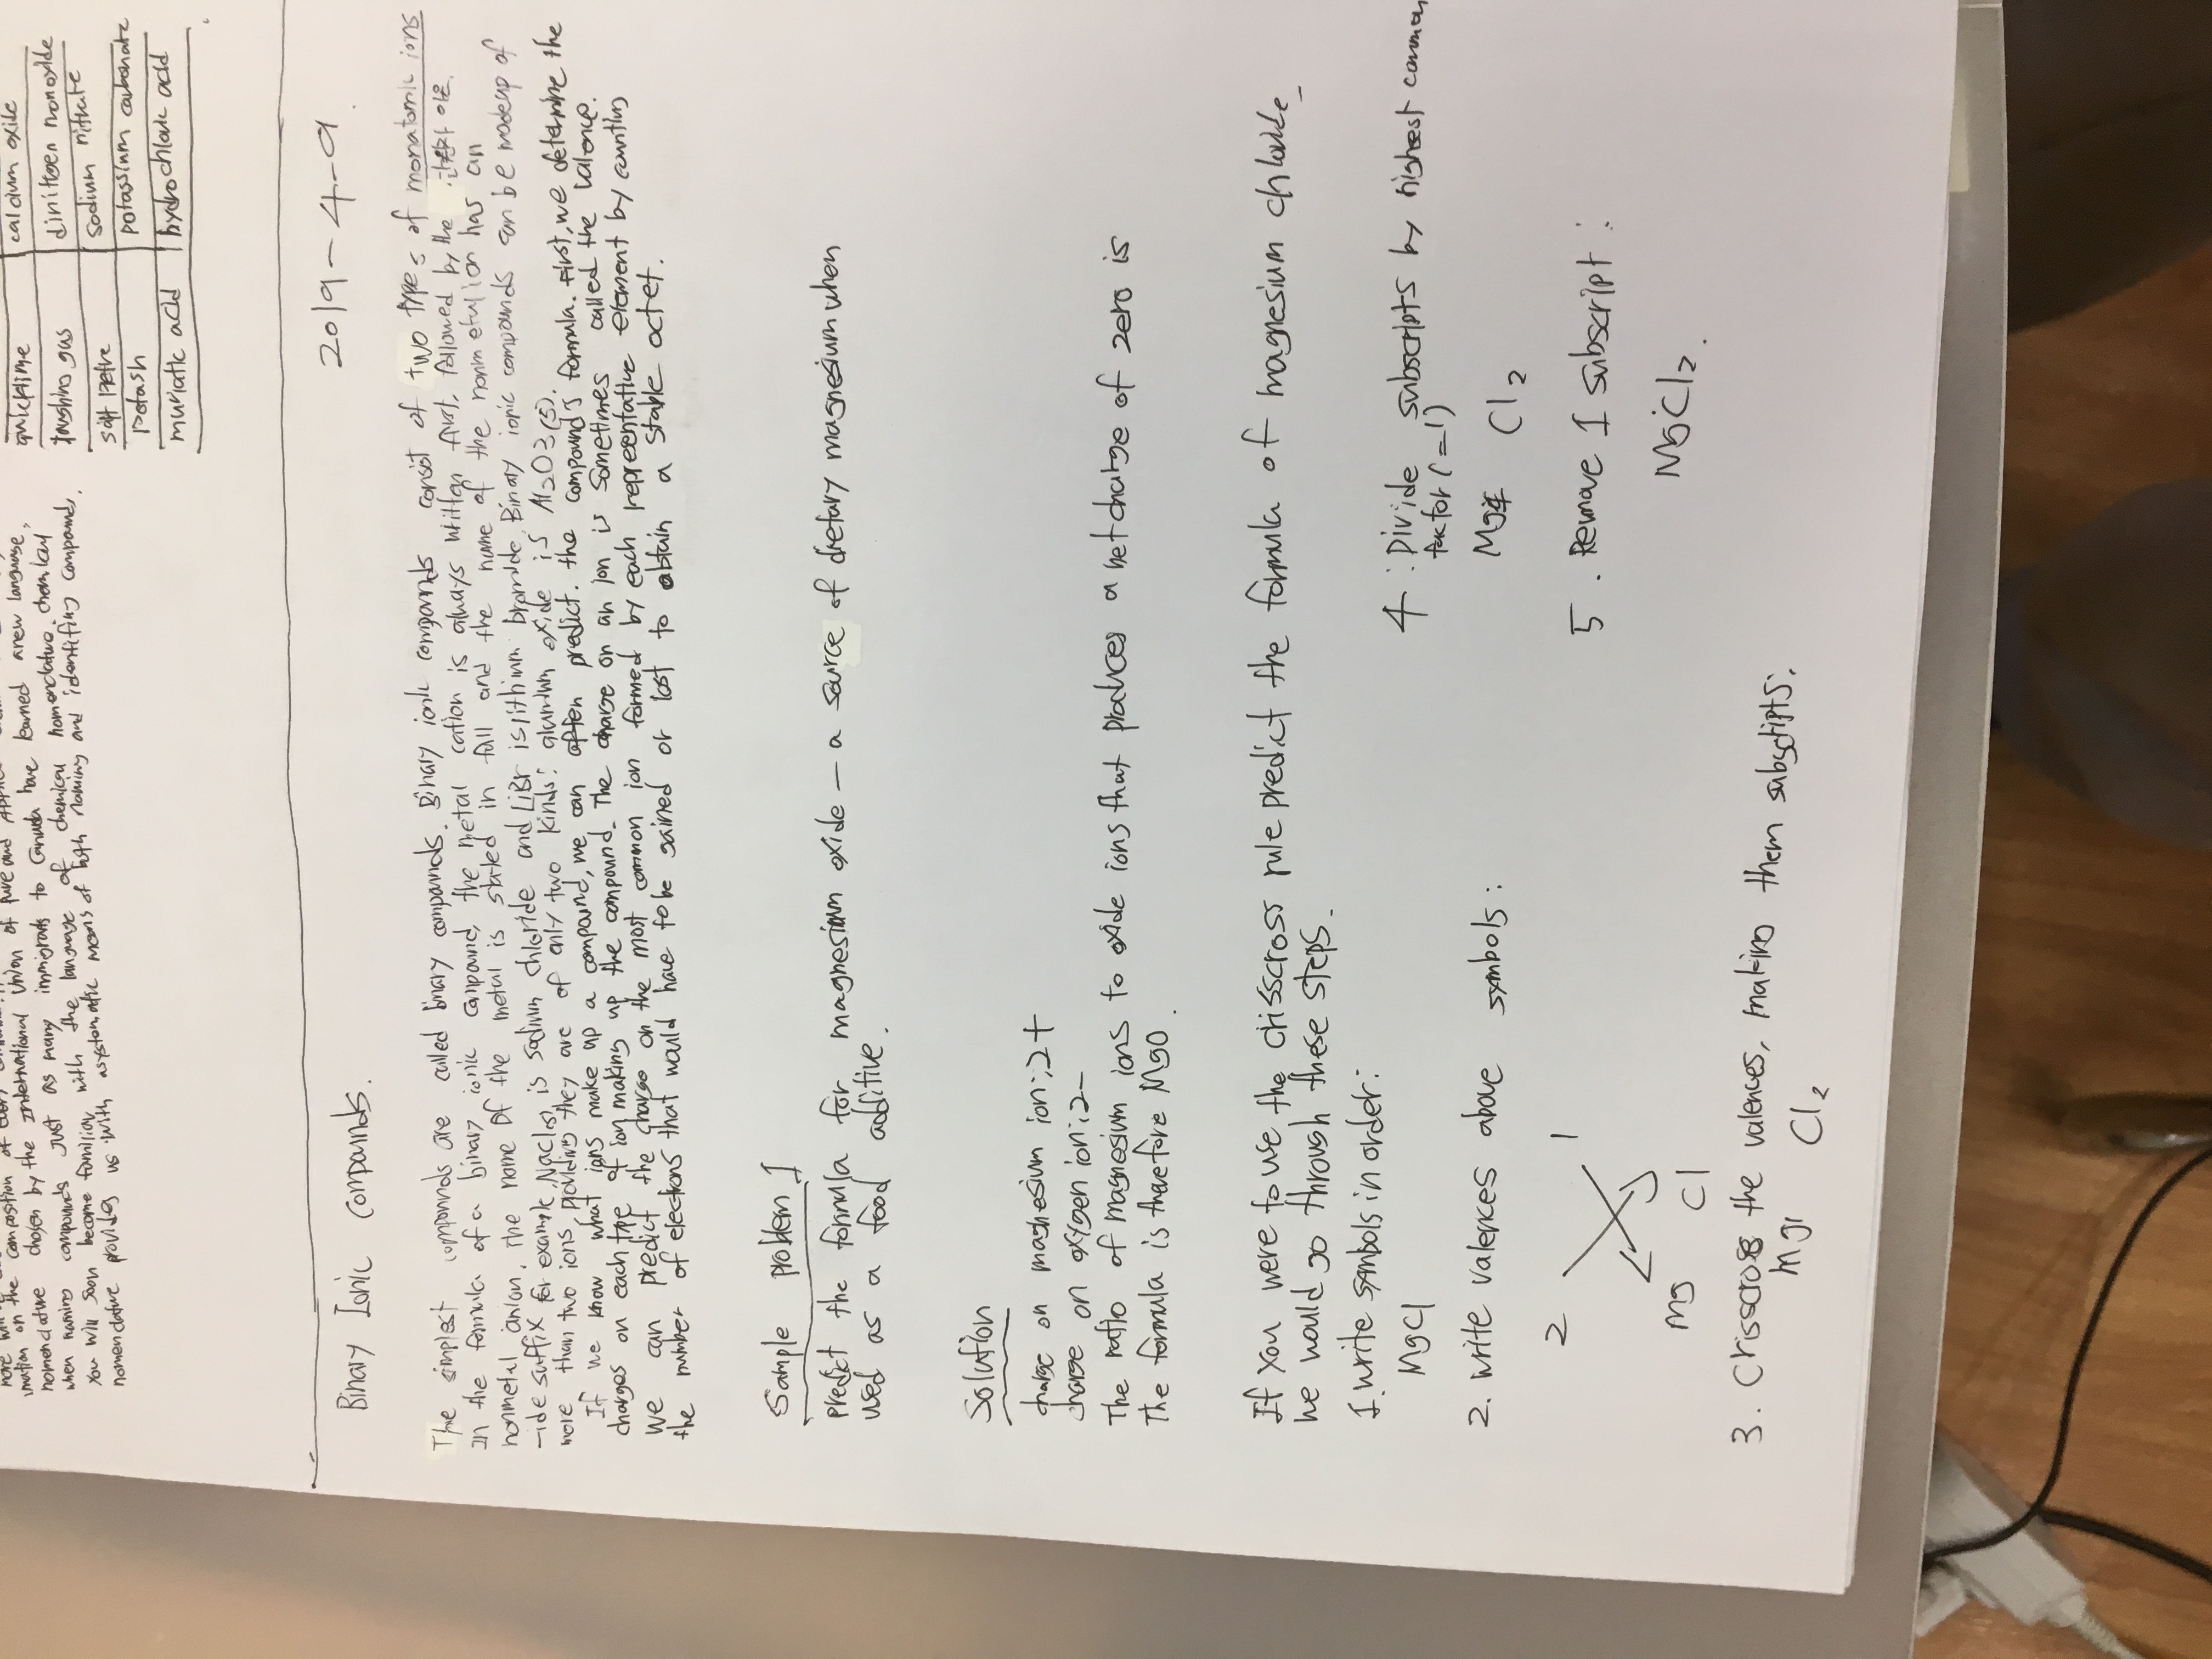 imation on the composition of
union of pure and
nomenclature chosen by the International
to Canada have learned a new language,
when naming compounds just as many immigrants
of chemical nomenclature. chemical
You will soon become familiar with the language
and identifying compounds,
nomenclature provides us with a systematic means of both naming
quicklime calcium oxide
laughing gas dinitrogen monoxide
salt petre sodium nitrate
potash potassium carbonate
muriatic acid hydrochloric acid
Binary Ionic compounds. 2019-4-9.
The simplest compounds are called binary compounds. Binary ionic compounds consist of two types of monatomic ions
In the formula of a binary ionic compound, the metal cation is always written first, followed by the
nonmetal anion. The name of the metal is stated in full and the name of the nonmetal ion has an
-ide suffix for example, NaCl(s) is sodium chloride and LiBr is lithium bromide. Binary ionic compounds can be madeup of
more than two ions, providing they are of only two kinds: aluminum oxide is Al2O3(s).
If we know what ions make up a compound, we can often predict. the compound's formula. First, we determine the
charges on each type of ion making up the compound. The charge on an ion is sometimes called the valence.
We can predict the charge on the most common ion formed by each representative element by counting
the number of electrons that would have to be gained or lost to obtain a stable octet.
Sample problem 1
predict the formula for magnesium oxide - a source of dietary magnesium when
used as a food additive.
Solution
charge on magnesium ion: 2+
charge on oxygen ion: 2-
The ratio of magnesium ions to oxide ions that produces a net charge of zero is
The formula is therefore MgO.
If you were to use the crisscross rule predict the formula of magnesium chloride_
he would go through these steps.
1. write symbols in order:
MgCl
2. write valences above symbols:
2 1
Mg Cl
3. Crisscross the valences, making them subscripts:
Mg1 Cl2
4: Divide subscripts by highest common
factor (=1)
Mg1 Cl2
5. Remove 1 subscript:
MgCl2.